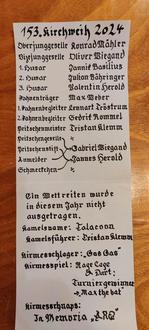 153. Kirchweih 2024
Oberjunggeselle Konrad Mähler
Vizejunggeselle Oliver Wiegand
1. Husar Jannis Basilius
2. Husar Julian Bähringer
3. Husar Valentin Herold
Fahnenträger Max Weber
Fahnenbegleiter Lennart Nöstrum
Fahnenbegleiter Cedric Rommel
Peitschenmeister Tristan Klemm
Peitschengeselle
Peitschenstift Gabriel Wiegand
Anmelder Jannes Herold
Schmerkchen
Ein Wettreiten wurde
in diesem Jahr nicht
ausgetragen.
Kamelsname: Talacoon
Kamelsführer: Tristan Klemm
Kirmesschlager: „Gas Gas"
Kirmesspiel: Rage Cage
& Dart:
Turniergewinner
→ Max the bat
Kirmesschnaps:
In Memoria „B.R.G"